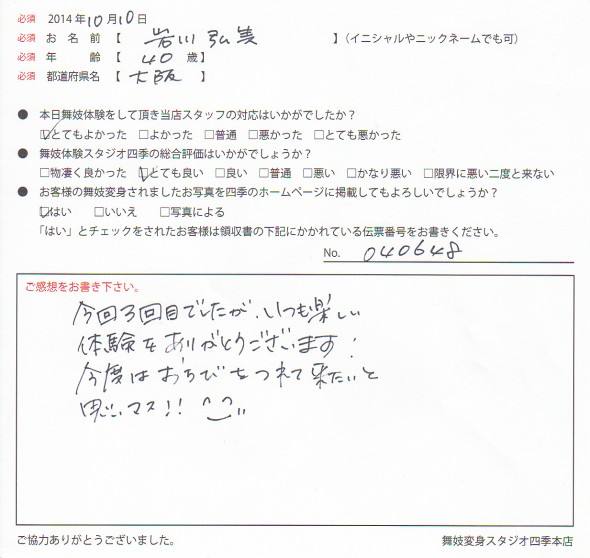 必須 2014年10月10日
必須 お名前【 岩川弘美 】(イニシャルやニックネームでも可)
必須 年齢【 40 歳】
必須 都道府県名【 大阪 】
● 本日舞妓体験をして頂き当店スタッフの対応はいかがでしたか?
☑とてもよかった □よかった □普通 □悪かった □とても悪かった
● 舞妓体験スタジオ四季の総合評価はいかがでしょうか?
□物凄く良かった ☑とても良い □良い □普通 □悪い □かなり悪い □限界に悪い二度と来ない
● お客様の舞妓変身されましたお写真を四季のホームページに掲載してもよろしいでしょうか?
☑はい □いいえ □写真による
「はい」とチェックをされたお客様は領収書の下記にかかれている伝票番号をお書きください。
No. 040648
ご感想をお書き下さい。
今回3回目でしたが、いつも楽しい
体験をありがとうございます!
今度はおちびをつれて来たいと
思いマス!! ^_^
ご協力ありがとうございました。
舞妓変身スタジオ四季本店